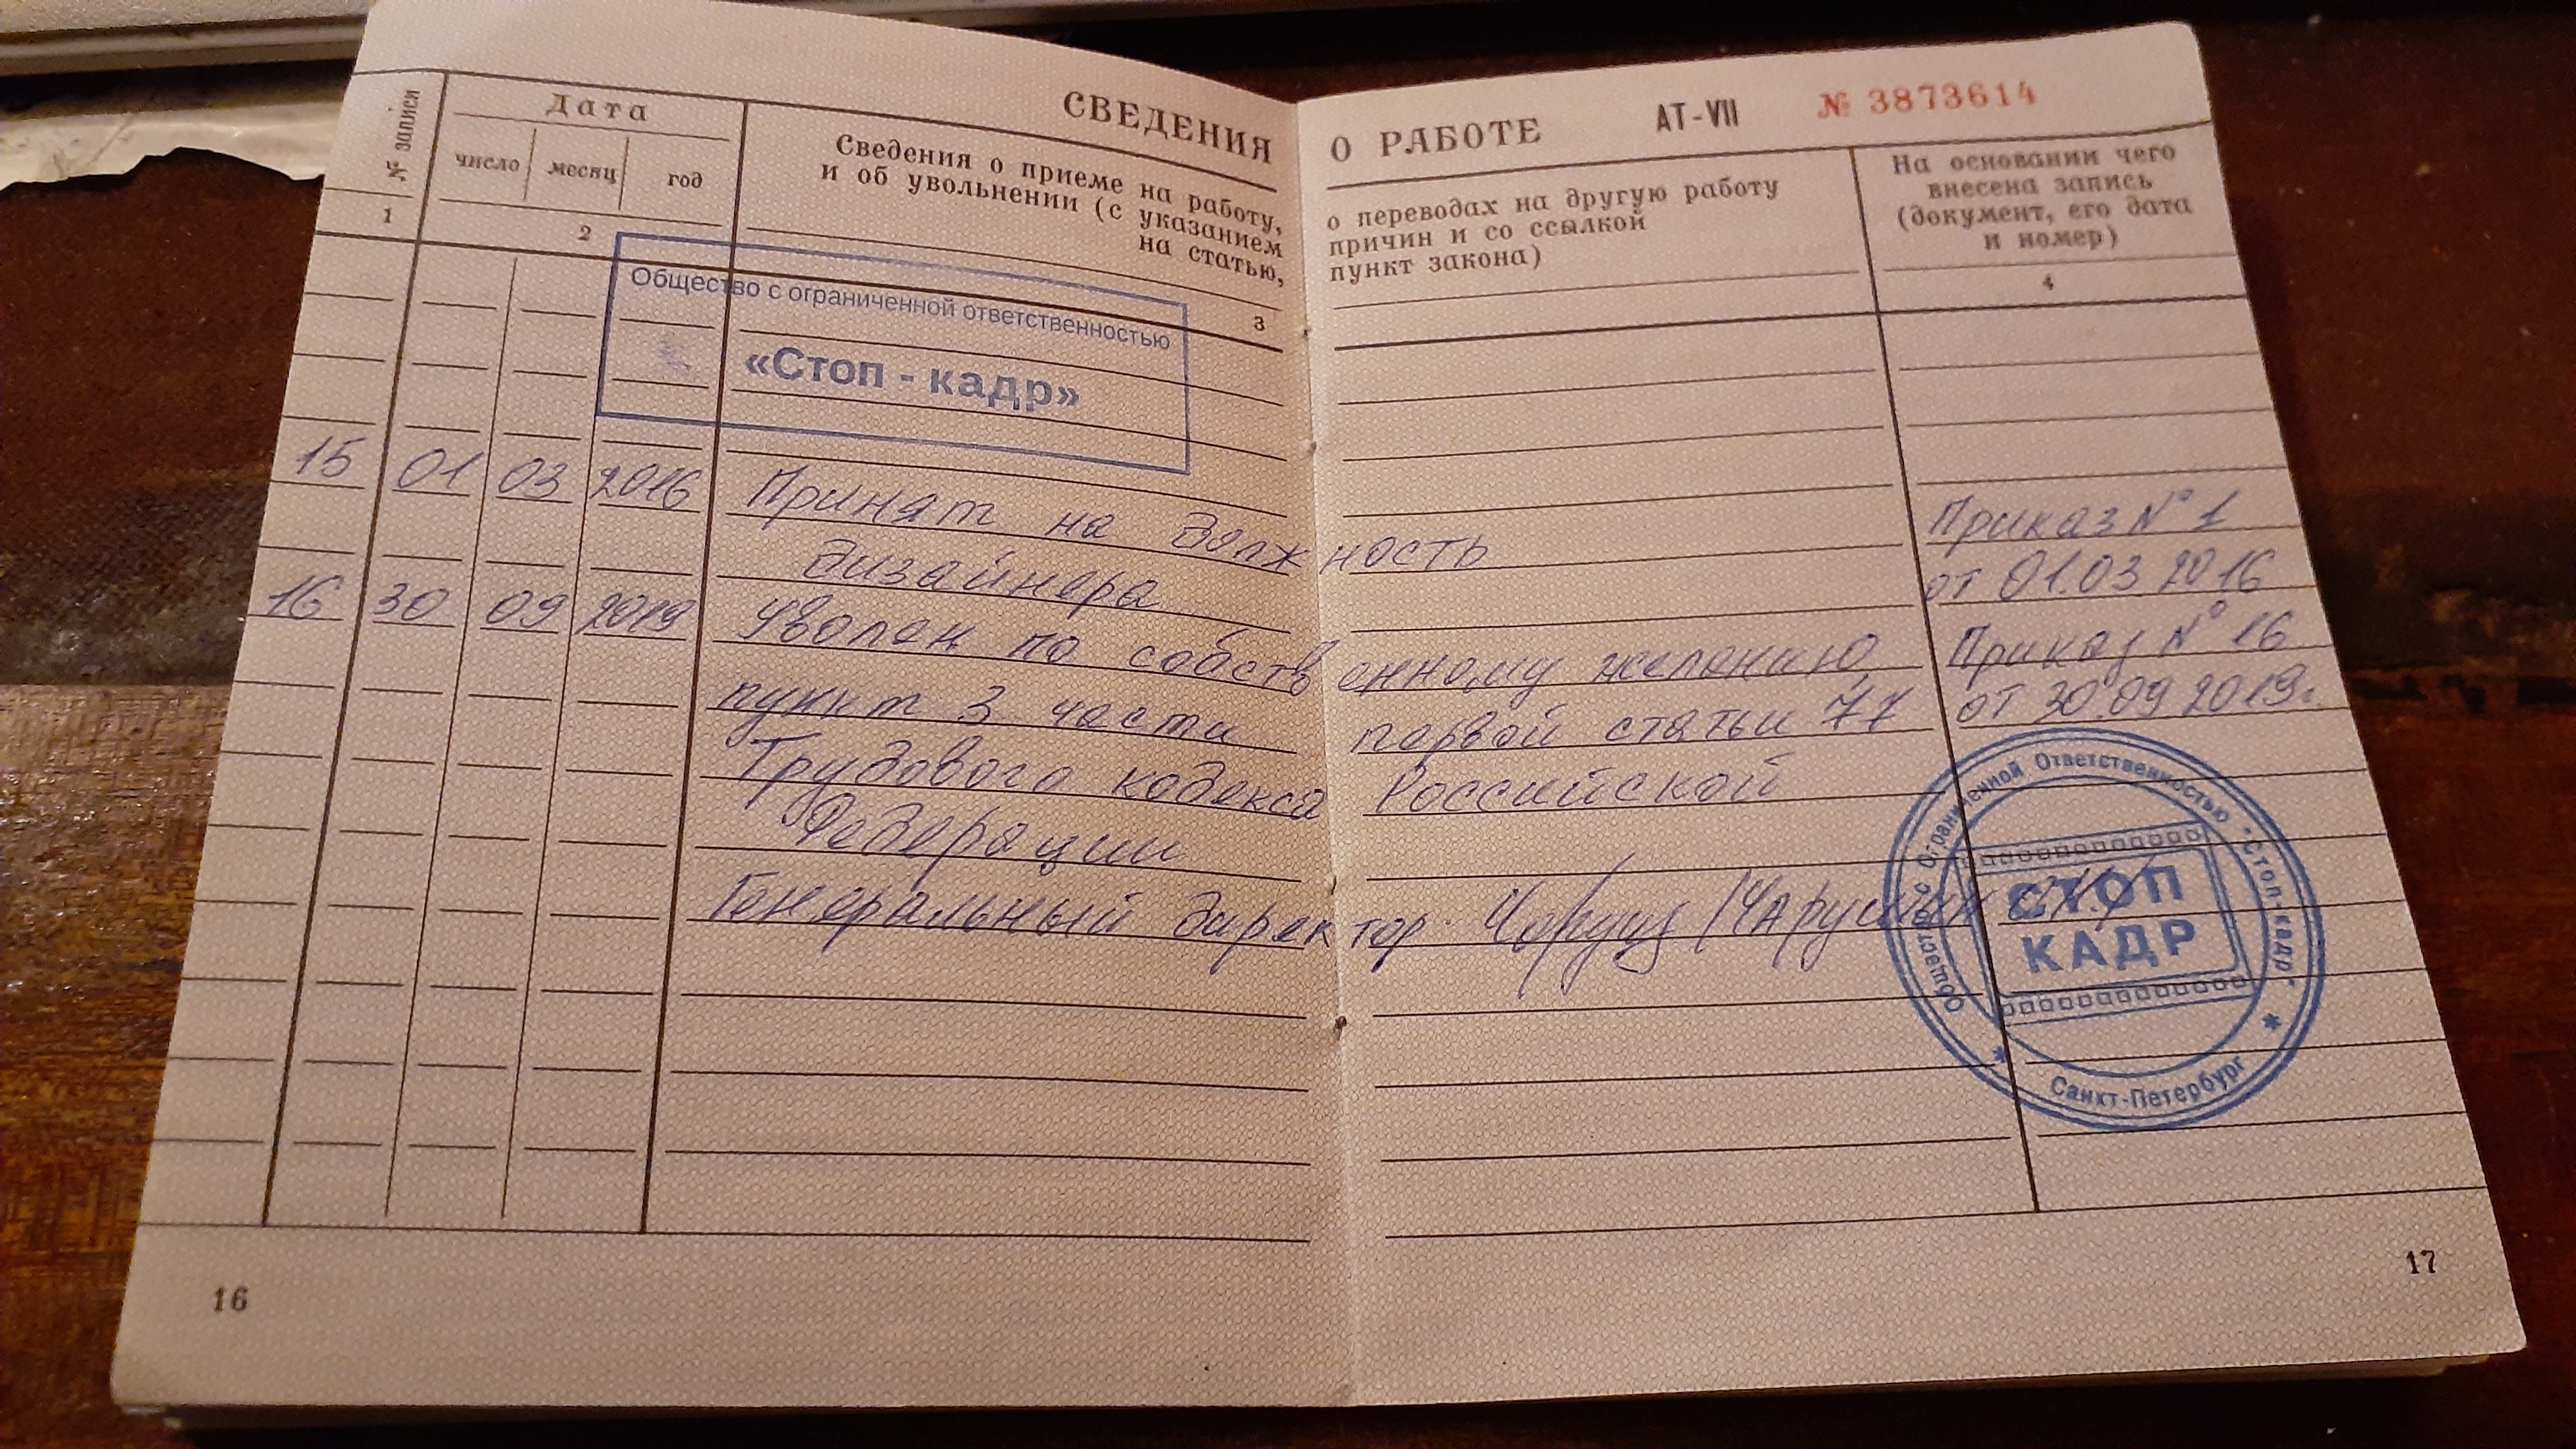 СВЕДЕНИЯ О РАБОТЕ АТ-VII № 3873614
№ записи
Дата
число месяц год
Сведения о приеме на работу, о переводах на другую работу
и об увольнении (с указанием причин и со ссылкой
на статью, пункт закона)
На основании чего
внесена запись
(документ, его дата
и номер)
1 2 3 4
Общество с ограниченной ответственностью
«Стоп - кадр»
15 01 03 2016 Принят на должность Приказ № 1
дизайнера от 01.03 2016
16 30 09 2019 Уволен по собственному желанию Приказ № 16
пункт 3 части первой статьи 77 от 30.09 2019г.
Трудового кодекса Российской
Федерации
Генеральный директор
Общество с Ограниченной Ответственностью "Стоп-кадр"
СТОП
КАДР
* Санкт-Петербург *
16 17